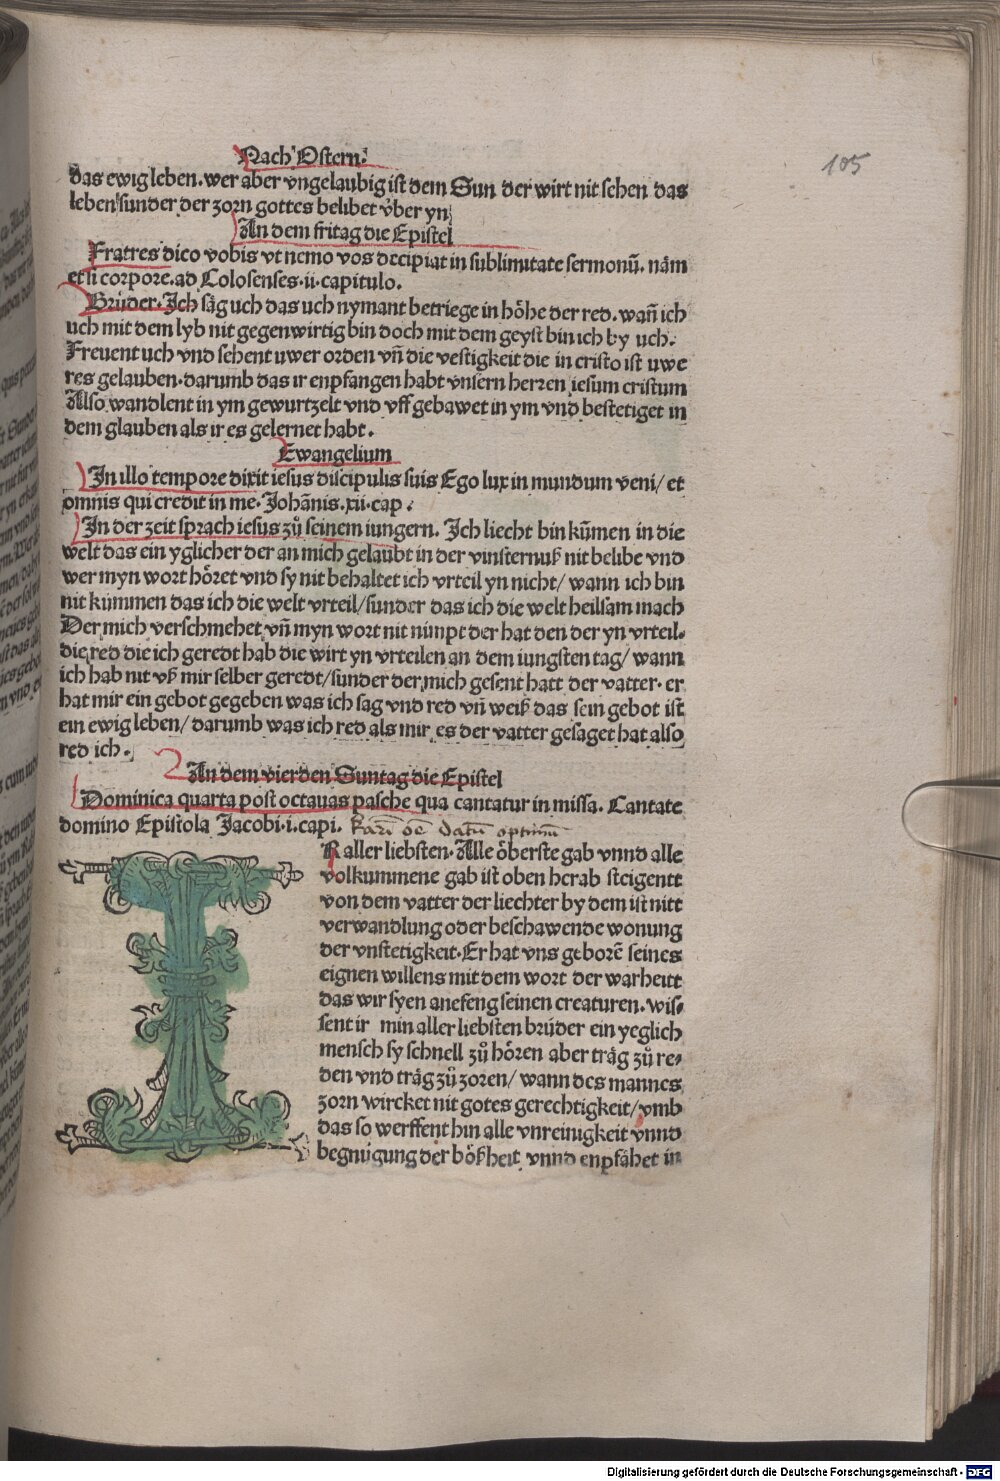 Nach Ostern.
105
das ewig leben. wer aber vngelaubig ist dem Sun der wirt nit sehen das
leben sunder der zorn gottes belibet v̈ber yn
An dem fritag die Epistel
Fratres dico vobis vt nemo vos decipiat in sublimitate sermonū. nām
et si corpore. ad Colosenses. ii. capitulo.
Brůder. Ich sāg uch das uch nymant betriege in hȯhe der red. wañ ich
uch mit dem lyb nit gegenwirtig bin doch mit dem geyst bin ich by uch.
Freuent uch vnd sehent uwer orden vñ die vestigkeit die in cristo ist uwe
res gelauben. darumb das ir enpfangen habt vnsern herren iesum cristum
Also wandlent in ym gewurtzelt vnd vff gebawet in ym vnd bestetiget in
dem glauben als ir es gelernet habt.
Ewangelium
In illo tempore dixit iesus discipulis suis Ego lux in mundum veni/ et
omnis qui credit in me. Johānis. xii. cap.
In der zeit sprach iesus zů seinem iungern. Ich liecht bin kūmen in die
welt das ein yglicher der an mich gelaubt in der vinsternuß nit belibe vnd
wer myn wort hȯret vnd sy nit behaltet ich vrteil yn nicht/ wann ich bin
nit kummen das ich die welt vrteil/ sunder das ich die welt heilsam mach
Der mich verschmehet vñ myn wort nit nimpt der hat den der yn vrteil.
die red die ich geredt hab die wirt yn vrteilen an dem iungsten tag/ wann
ich hab nit vß mir selber geredt/ sunder der mich gesent hatt der vatter. er
hat mir ein gebot gegeben was ich sag vnd red vñ weiß das sein gebot ist
ein ewig leben/ darumb was ich red als mir es der vatter gesaget hat also
red ich.
An dem vierden Suntag die Epistel
Dominica quarta post octauas pasche qua cantatur in missa. Cantate
domino Epistola Jacobi. i. capi. Karī ōē datū optimū
I
R aller liebsten. Alle ȯberste gab vnnd alle
volkummene gab ist oben herab steigentt
von dem vatter der liechter by dem ist nitt
verwandlung oder beschawende wonung
der vnstetigkeit. Er hat vns geborē seines
eignen willens mit dem wort der warheitt
das wir syen anefeng seinen creaturen. wis-
sent ir min aller liebsten brüder ein yeglich
mensch sy schnell zů hȯren aber trāg zů re-
den vnd trāg zů zoren/ wann des mannes
zorn wircket nit gotes gerechtigkeit/ vmb
das so werffent hin alle vnreinigkeit vnnd
begnügung der bȯßheit vnnd enpfāhet in
Digitalisierung gefördert durch die Deutsche Forschungsgemeinschaft - DFG